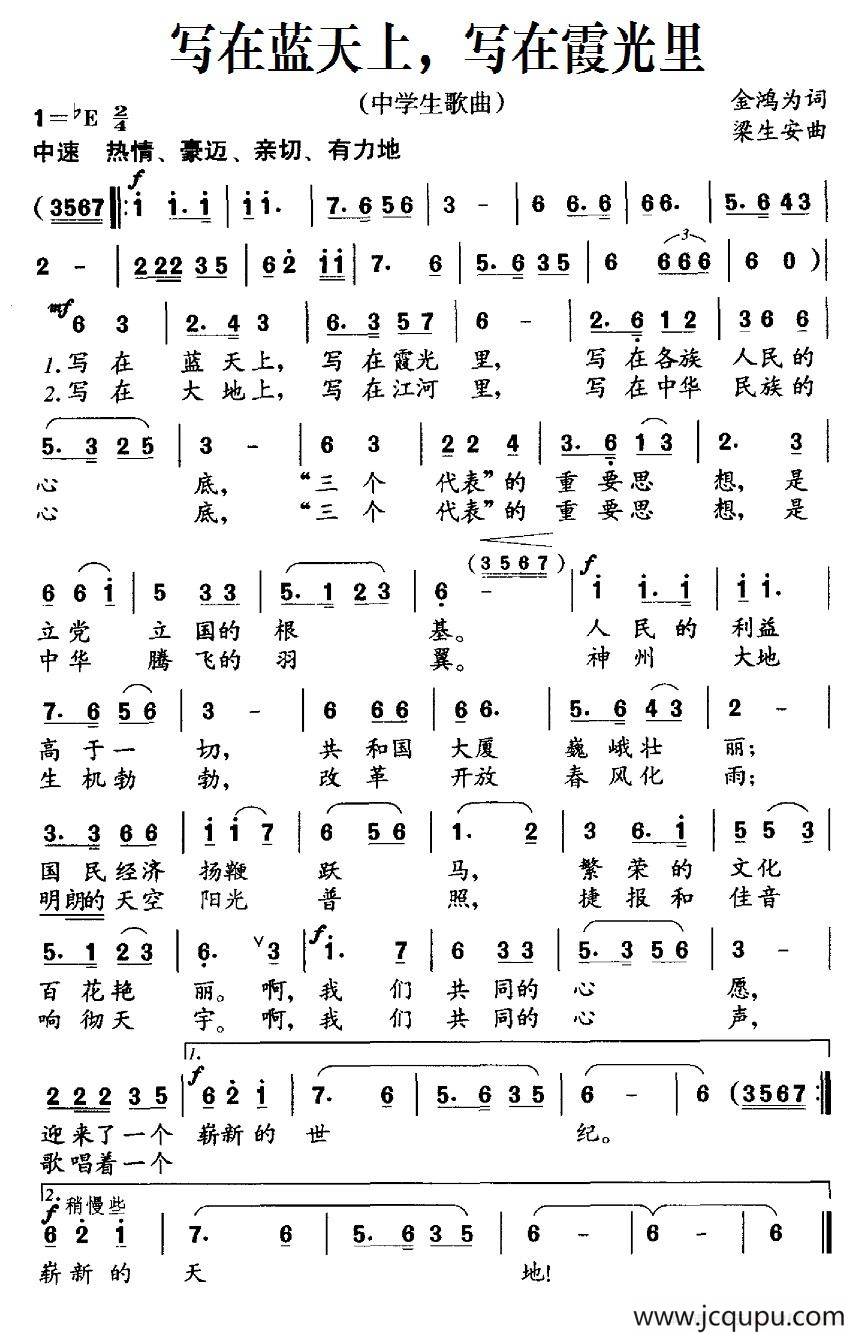 写在蓝天上，写在霞光里
（中学生歌曲）
1=♭E 2/4
金鸿为词
梁生安曲
中速 热情、豪迈、亲切、有力地
f
(3567 ‖: i i. i | i i. | 7. 6 56 | 3 - | 6 6. 6 | 66. | 5. 6 43
2 - | 222 35 | 62 ii | 7. 6 | 5. 635 | 6 666 | 6 0 )
mf
6 3 | 2. 4 3 | 6. 3 57 | 6 - | 2. 6 12 | 36 6
1.写在 蓝天上， 写在霞光 里， 写在各族 人民的
2.写在 大地上， 写在江河 里， 写在中华 民族的
5. 3 25 | 3 - | 6 3 | 22 4 | 3. 6 13 | 2. 3
心 底， “三个 代表”的 重要思 想，是
心 底， “三个 代表”的 重要思 想，是
(3567) f
6 6i | 5 33 | 5. 1 23 | 6 - | i i. i | i i.
立党 立国的 根 基。 人民的 利益
中华 腾飞的 羽 翼。 神州 大地
7. 6 56 | 3 - | 6 66 | 66. | 5. 6 43 | 2 -
高于一 切， 共和国 大厦 巍峨壮 丽；
生机勃 勃， 改革 开放 春风化 雨；
3. 3 66 | i i7 | 6 56 | 1. 2 | 3 6. i | 55 3
国民经济 扬鞭 跃 马， 繁荣的 文化
明朗的天空 阳光 普 照， 捷报和 佳音
5. 1 23 | 6. ∨3 | f i. 7 | 6 33 | 5. 356 | 3 -
百花艳 丽。啊，我们 共同的 心 愿，
响彻天 宇。啊，我们 共同的 心 声，
1.
222 35 | f 62i | 7. 6 | 5. 635 | 6 - | 6 (3567 :‖
迎来了一个 崭新的 世 纪。
歌唱着一个
2. f 稍慢些
62i | 7. 6 | 5. 635 | 6 - | 6 - | 6 - ‖
崭新的 天 地！
www.jcqupu.com